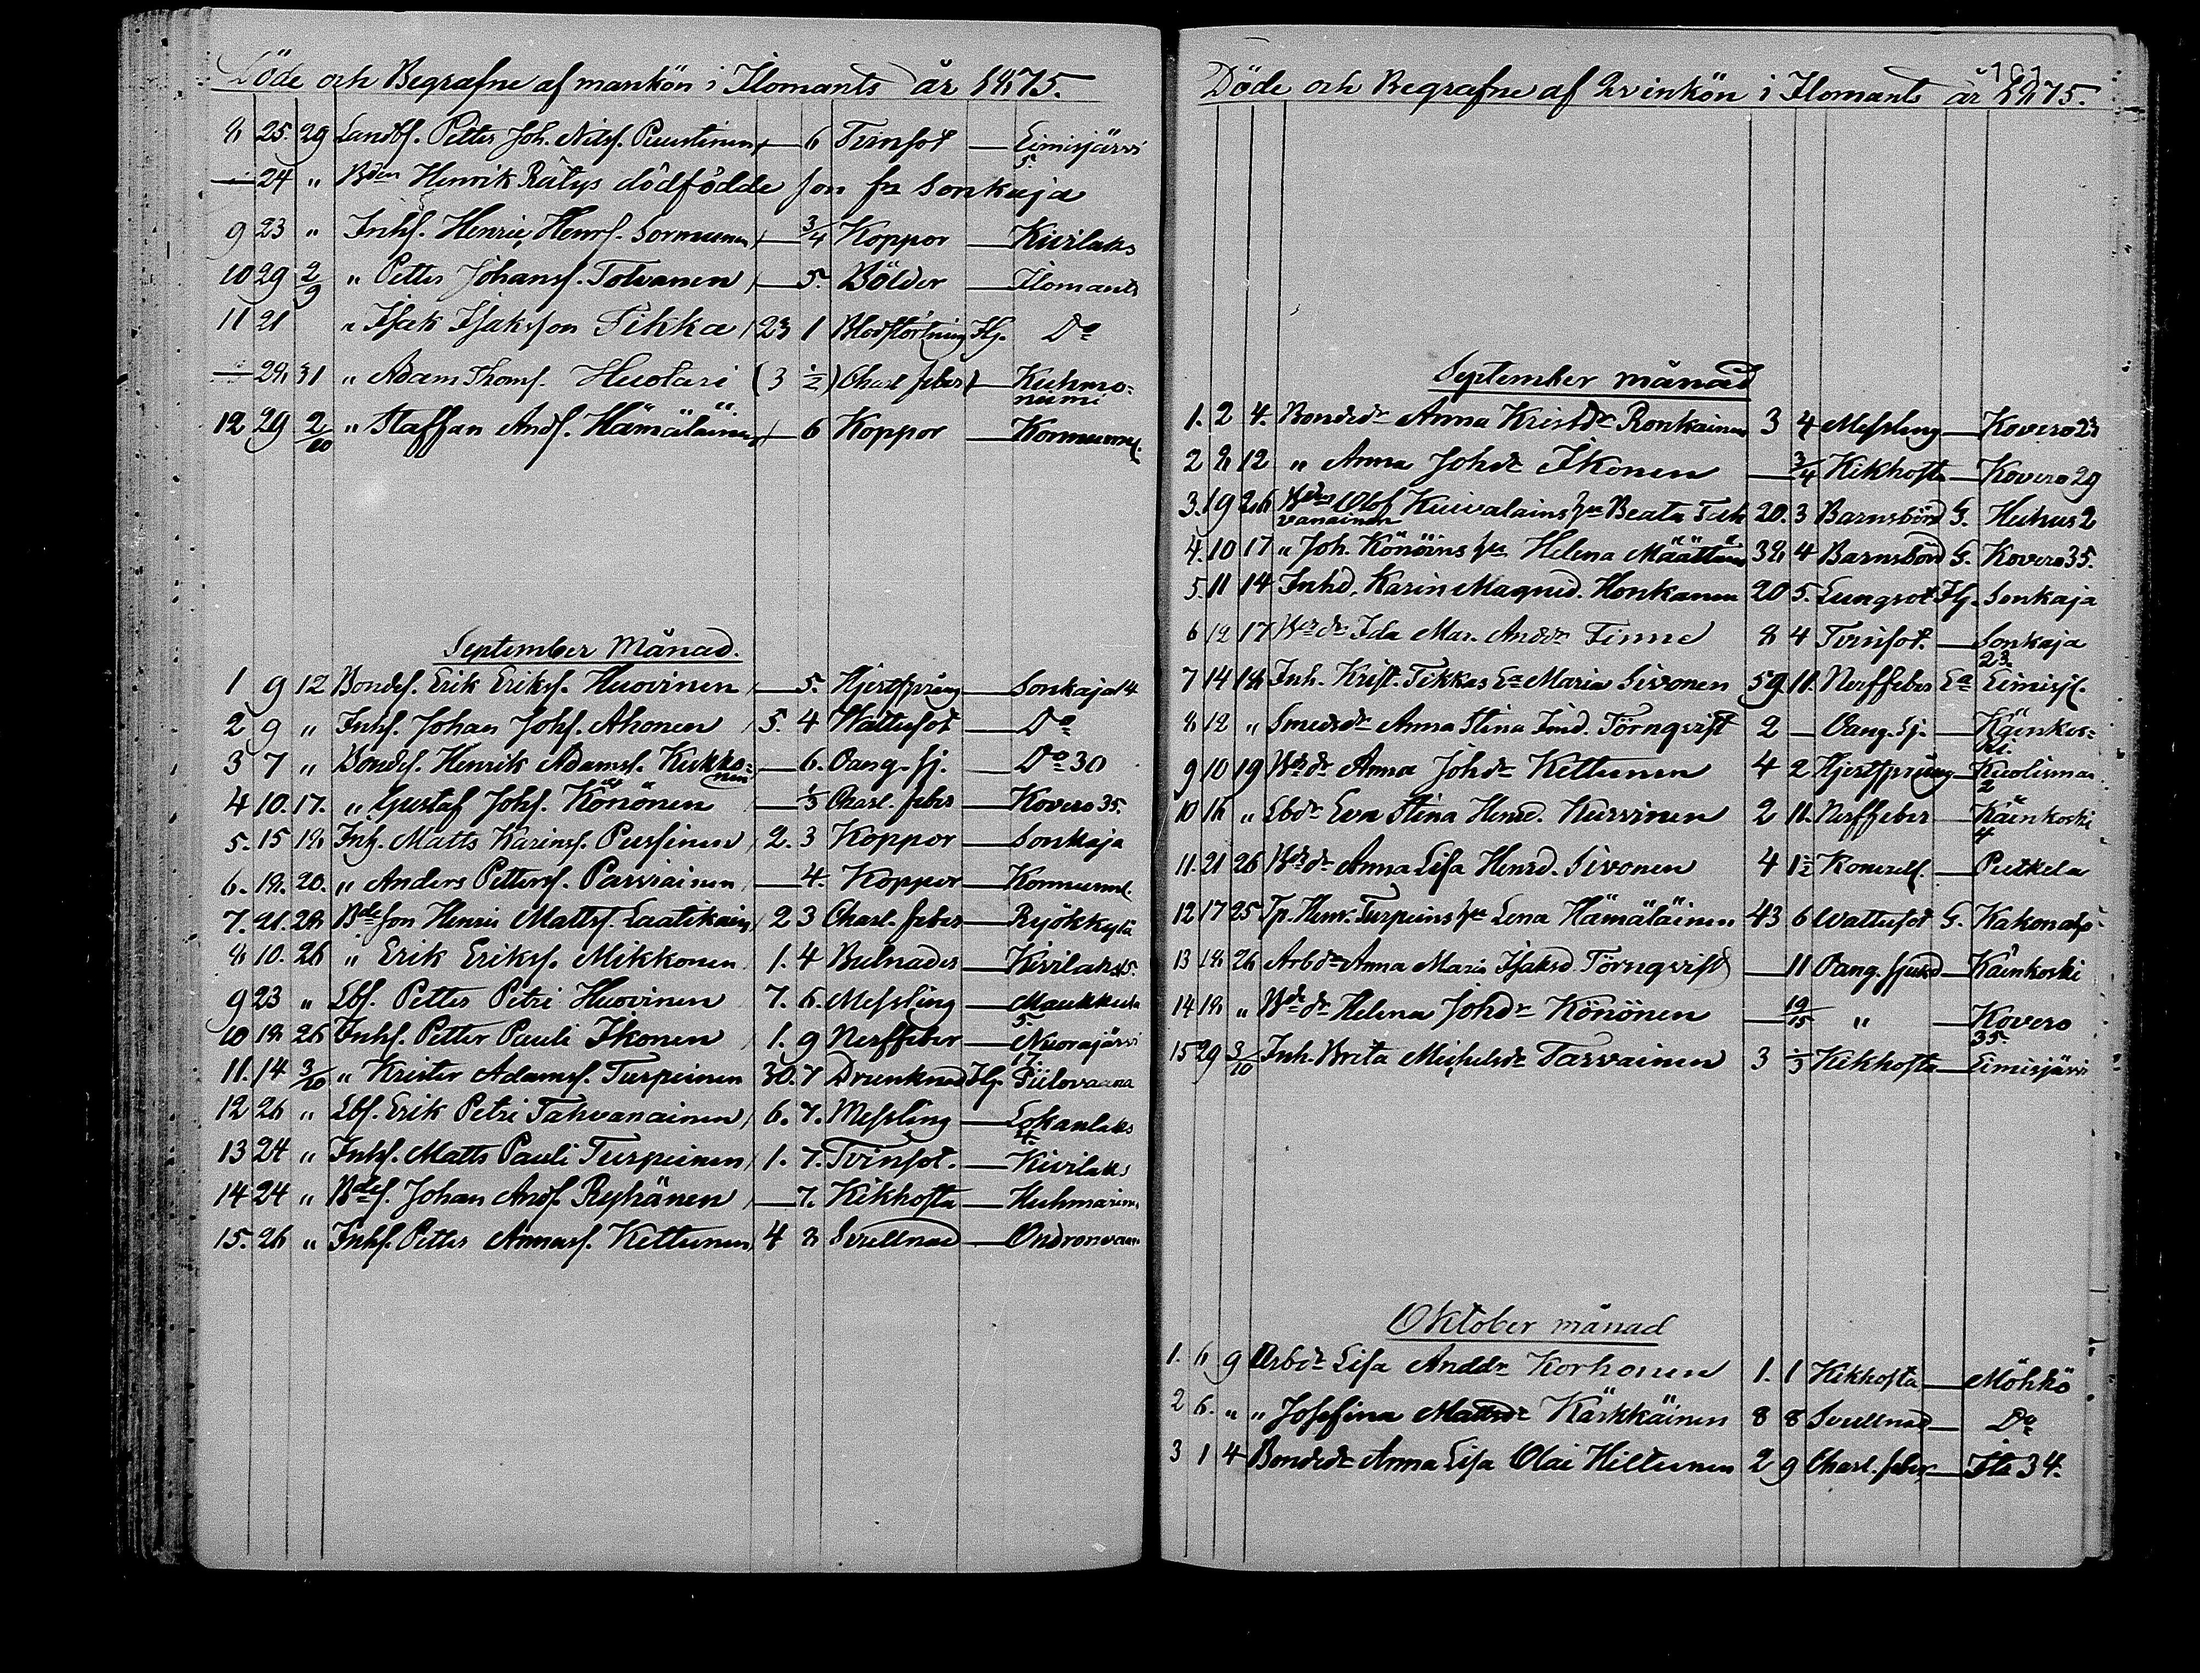 Döde och Begrafne af mankön i Ilomants år 1875.
8 25. 29 Landbs. Petter Joh. Nilss. Puustinen — 6 Tvinsot — Eimisjärvi 5.
— 24 " Bden Henrik Rätys dödfödde son fr Sonkaja
9 23 " Inhs. Henric Henrs. Sormunen — 3/4 Koppor — Kivilaks
10 29 2/9 " Petter Johanss. Tolvanen — 5. Bölder — Ilomants
11 21 " Isak Isaksson Tikka 23 1 Blodstörtning Hj. Do
— 28 31 " Adam Thoms. Huolari (3 1/2) Charl feber) — Kuhmoniemi
12 29 2/10 " Staffan Ands. Hämäläinen — 6 Koppor —
September Månad.
1 9 12 Bondes. Erik Eriks. Huovinen — 5. Hjertsprång — Sonkaja 14
2 9 " Inhs. Johan Johs. Ahonen 5. 4 Vattusot — Do
3 7 " Bondes. Henrik Adams. Kukkonen — 6. Oang. sj. — Do 30
4 10. 17. " Gustaf Johs. Könönen — 1/3 Charl. feber — Kovero 35.
5. 15 18 Inh. Matts Karins. Pussinen 2. 3 Koppor — Sonkaja
6. 18. 20. " Anders Petters. Parviainen — 4. Koppor —
7. 21. 28 Bdeson Henric Mattss. Laatikain 2 3 Charl. feber —
8 10. 26 " Erik Erikss. Mikkonen 1. 4 Bulnader — Kivilaks 15.
9 23 " Lbs. Petter Petri Huovinen 7. 6. Messling — Maukkula 5.
10 18 26 Inhs. Petter Pauli Ikonen 1. 9 Nerffeber — Nuorajärvi 17
11. 14 3/10 " Krister Adamss. Turpeinen 30. 7 Drunknad Hj. Piilovaara
12 26 " Lbs. Erik Petri Tahvanainen 6. 7. Messling — Lokanlaks 4.
13 24 " Inhs. Matts Pauli Turpeinen 1. 7. Tvinsot. — Kivilaks
14 24 " Bdes. Johan Ands. Ryhänen — 7. Kikhosta —
15. 26 " Inhs. Petter Annas. Kettunen 4 8 Svullnad —
101
Döde och Begrafne af Qvinkön i Ilomants år 1875.
September månad
1. 2 4. Bondedr Anna Kristdr Ronkainen 3 4 Messling — Kovero 23
2 8 12 " Anna Johdr Ikonen — 3/4 Kikhosta — Kovero 29
3. 19 26 Bdens Olof Kuivalains hu Beata Tahvanainen 20. 3 Barnsbörd G. Huhus 2
4. 10 17 " Joh. Könöins hu Helena Määttänen 38 4 Barnsbörd G. Kovero 35.
5. 11 14 Inhd. Karin Magnid. Honkanen 20 5. Lungsot Hj. Sonkaja
6 12 17 Bdedr Ida Mar. Anddr Timne 8 4 Tvinsot. — Sonkaja 23
7 14 18 Inh. Krist. Tikkas Ea Maria Sivonen 59 11. Nerffeber Ea Eimisj.
8 12 " Smedsdr Anna Stina Törnqvist 2 — Oang. Sj. — Käenkoski
9 10 19 Bdedr Anna Johdr Kettunen 4 2 Hjertsprång — Kuolismaa 2
10 16 " Lbdr Eva Stina Henrd. Hurvinen 2 11. Nerffeber — Käenkoski 4
11. 21 26 Bdedr Anna Lisa Henrd. Sivonen 4 1 1/2 —
12 17 25 Tp. Henr. Turpeins hu Lena Hämäläinen 43 6 Vattusot G.
13 18 26 Arbdr Anna Maria Isaksd. Törnqvist — 11 Oang. sjukd — Käenkoski
14 18 " Bdedr Helena Johdr Könönen — 19/15 " — Kovero 35
15 29 3/10 Inh. Brita Michelsdr Tarvainen 3 1/3 Kikhosta — Eimisjärvi
Oktober månad
1. 6 9 Arbdr Lisa Anddr Korhonen 1. 1 Kikhosta — Möhkö
2 6. " " Josefina Mattsdr Kärkkäinen 8 8 Svullnad — Do
3 1 4 Bondedr Anna Lisa Olai Hiltunen 2 9 Charl. feber — Ilo 34.